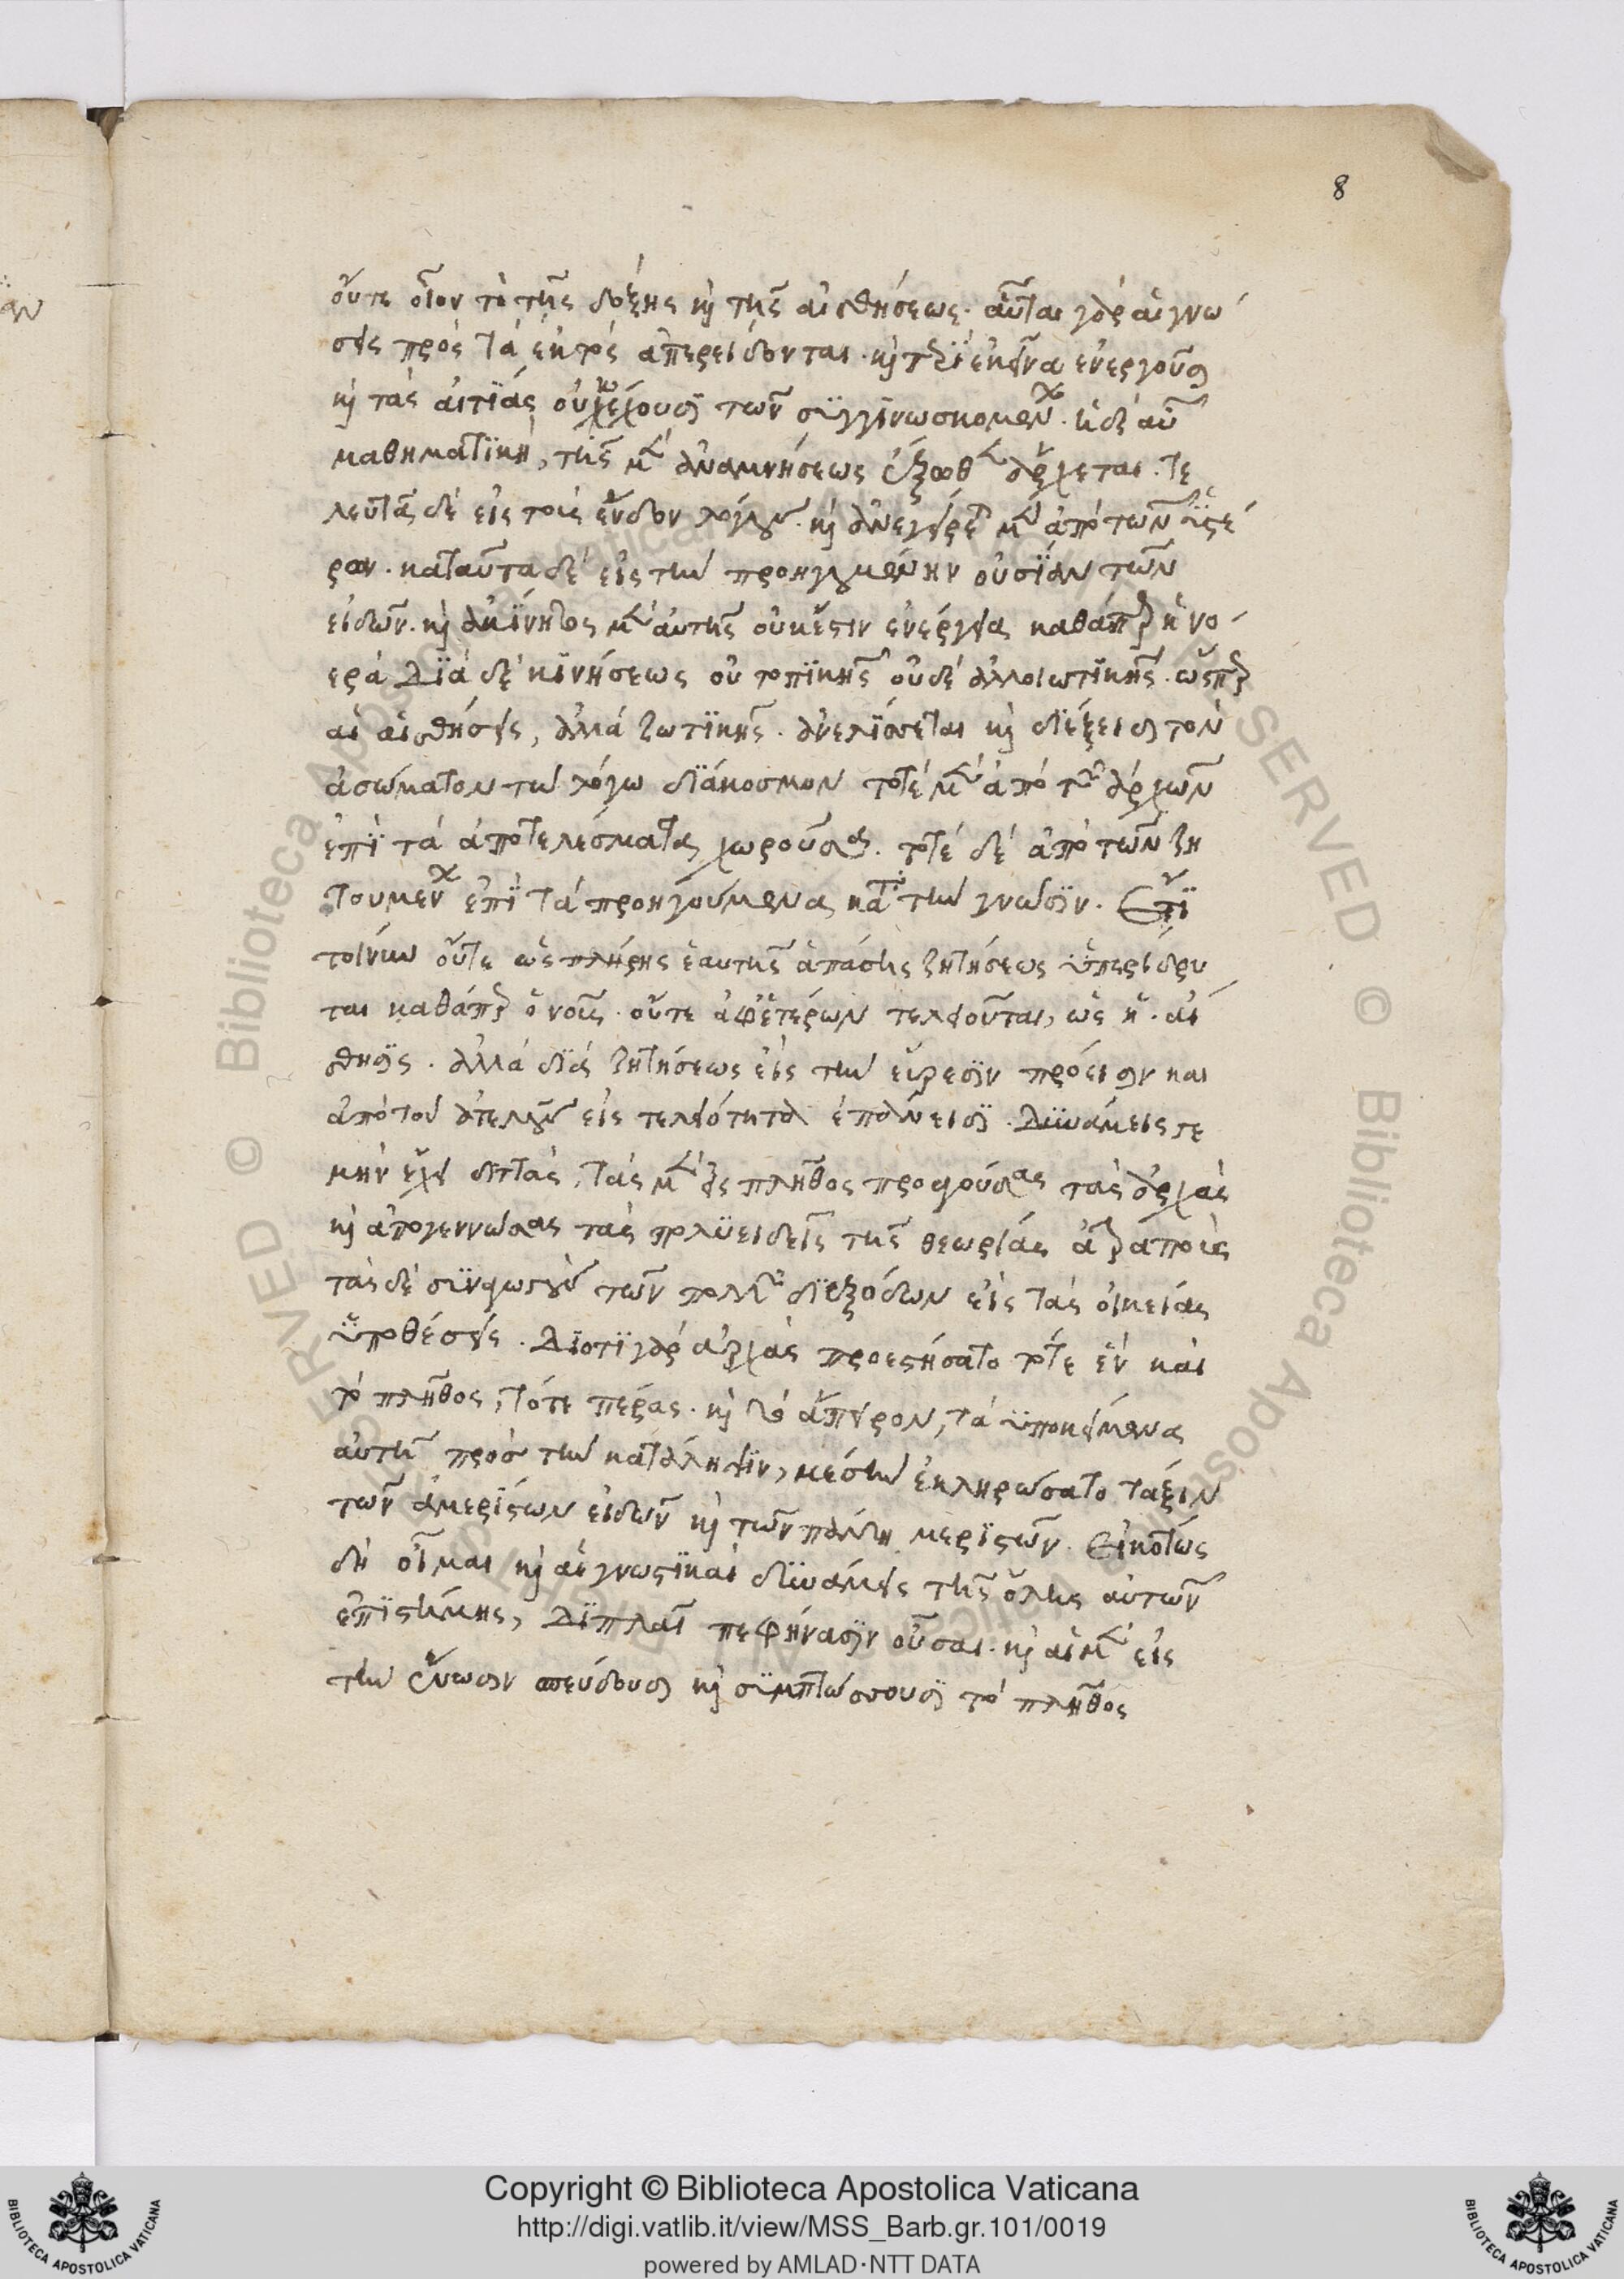 8
οὔτε οἷον τὸ τῆς δόξης κὶ τῆς αἰσθήσεως. αὗται γὰρ αἱ γνώ
σεις πρὸς τὰ ἐκτὸς ἀπερείδονται. κὶ περὶ ἐκεῖνα ἐνεργοῦσι
κὶ τὰς αἰτίας οὐκ ἔχουσι τῶν συγγινωσκομένων. ἡ δὲ αὖ
μαθηματικὴ, τῆς μὲν ἀναμνήσεως ἔξωθεν ἄρχεται. τε
λευτᾶ δὲ εἰς τοὺς ἔνδον λόγους. κὶ ἀνεγείρεται μὲν ἀπὸ τῶν ὑστέ
ρων. καταντα δὲ εἰς τὴν προηγουμένην οὐσίαν τῶν
εἰδῶν. κὶ ἀκίνητος μὲν αὐτῆς οὐκ ἔστιν ἐνέργεια καθάπερ ἡ νο
ερὰ διὰ δὲ κινήσεως οὐ τοπικῆς οὐδὲ ἀλλοιωτικῆς. ὥσπερ
αἱ αἰσθήσεις, ἀλλὰ ζωτικῆς. ἀνελίσσεται κὶ διέξεισι τὸν
ἀσώματον τῶν λόγω διάκοσμον τοτὲ μὲν ἀπὸ τῶν ἀρχῶν
ἐπὶ τὰ ἀποτελέσματα χωροῦσα. τοτὲ δὲ ἀπὸ τῶν ζη
τουμένων ἐπὶ τὰ προηγούμενα κατὰ τὴν γνῶσιν. Ἔτι
τοίνυν οὔτε ὡς πλήρης ἑαυτῆς ἁπάσης ζητήσεως ὑπερίδρυ
ται καθάπερ ὁ νοῦς. οὔτε ἀφ' ἑτέρων τελειοῦται, ὡς ἡ. αἴ
σθησις. ἀλλὰ διὰ ζητήσεως εἰς τὴν εὕρεσιν πρόεισιν και
ἀπὸ τοῦ ἀτελοῦς εἰς τελειότητα ἐπάνεισι. Δυνάμεις γε
μὴν ἔχει διττὰς, τὰς μὲν εἰς πλῆθος προαγούσας τὰς ἀρχὰς
κὶ ἀπογεννώσας τὰς πολυειδεῖς τῆς θεωρίας ἀτραποὺς
τὰς δὲ συναγωγοὺς τῶν πολλῶν διεξόδων εἰς τὰς οἰκείας
ὑποθέσεις. Διότι γὰρ ἀρχὰς προεστήσατο τό τε ἓν καὶ
τὸ πλῆθος, τό τε πέρας. κὶ τὸ ἄπειρον, τὰ ὑποκείμενα
αὐτῆ πρὸς τὴν κατάληψιν, μέσην ἐκληρώσατο τάξιν
τῶν ἀμερίστων εἰδῶν κὶ τῶν πάντη μεριστῶν. Εἰκότως
δὴ οἶμαι κὶ αἱ γνωστικαὶ δυνάμεις τῆς ὅλης αὐτῶν
ἐπιστήμης, διπλαῖ πεφήνασιν οὖσαι. κὶ αἱ μὲν εἰς
τὴν ἕνωσιν σπεύδουσι κὶ συμπτύσσουσι τὸ πλῆθος
Copyright © Biblioteca Apostolica Vaticana
http://digi.vatlib.it/view/MSS_Barb.gr.101/0019
powered by AMLAD·NTT DATA